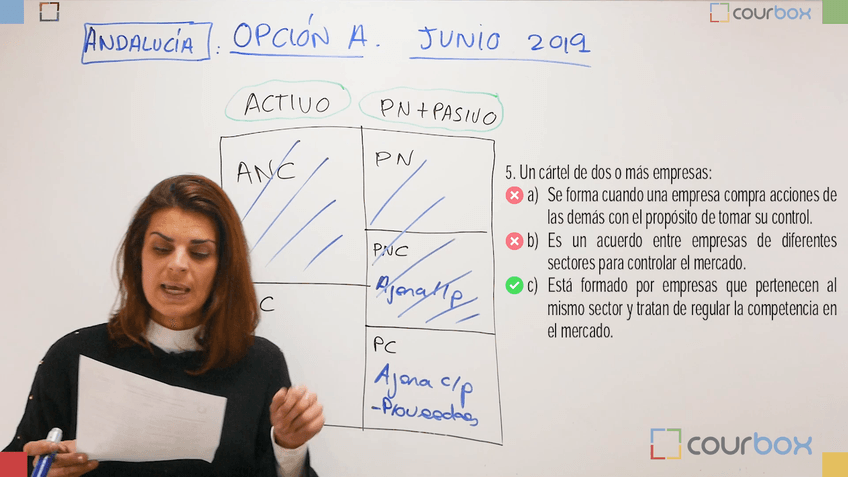 courbox
ANDALUCÍA : OPCIÓN A. JUNIO 2019
ACTIVO PN + PASIVO
ANC PN
PNC
Ajena l/p
C
PC
Ajena c/p
- Proveedores
5. Un cártel de dos o más empresas:
a) Se forma cuando una empresa compra acciones de
las demás con el propósito de tomar su control.
b) Es un acuerdo entre empresas de diferentes
sectores para controlar el mercado.
c) Está formado por empresas que pertenecen al
mismo sector y tratan de regular la competencia en
el mercado.
courbox